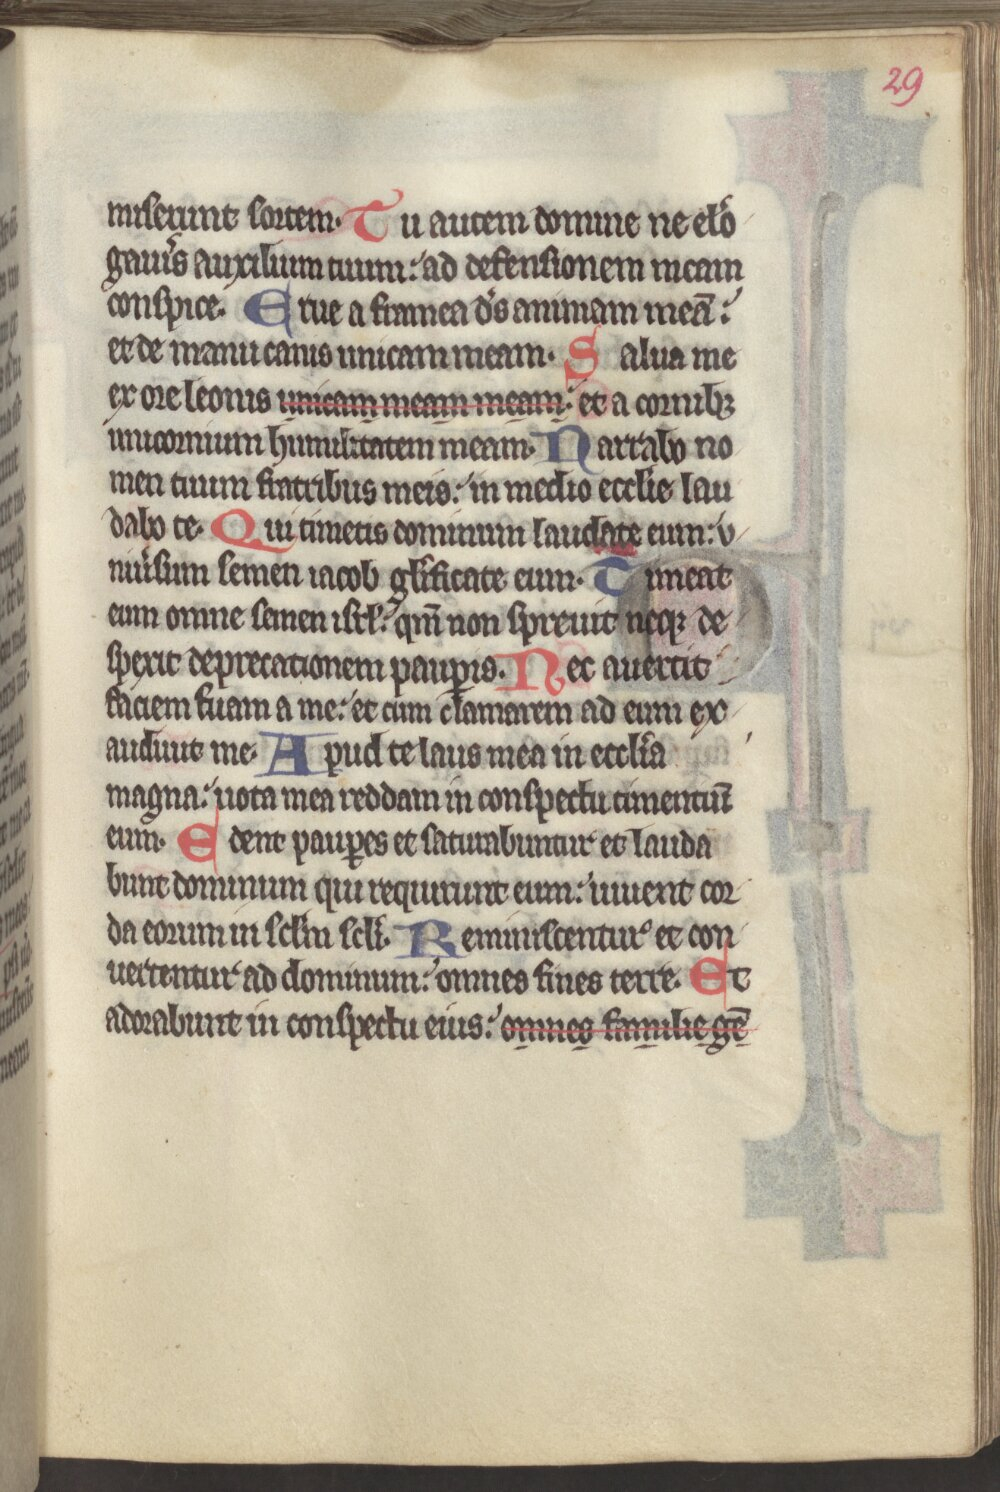 29
miserunt sortem. Tu autem domine ne elō
gaueͥs auxilium tuum: ad defensionem meam
conspice. Erue a framea d̄s animam meā:
et de manu canis unicam meam. Salua me
ex ore leonis unicam meam meam: et a cornibꝫ
unicornium humilitatem meam. Narrabo no
men tuum fratribus meis: in medio ecclie lau
dabo te. Qui timetis dominum laudate eum: v
niu͛sum semen iacob gl̓ificate eum. Timeat
eum omne semen isrl̓: qm̄ non spreuit neqꝫ de
spexit deprecationem paup̲is. Nec auertit
faciem suam a me: et cum clamarem ad eum ex
audiuit me. Apud te laus mea in eccl̓ia
magna: uota mea reddam in conspectu timentiū
eum. Edent paup̲es et saturabuntur et lauda
bunt dominum qui requirunt eum: uiuent cor
da eorum in scl̓m scl̓i. Reminiscentur et con
uertentur ad dominum: omnes fines terre. Et
adorabunt in conspectu eius: omnes familie gē